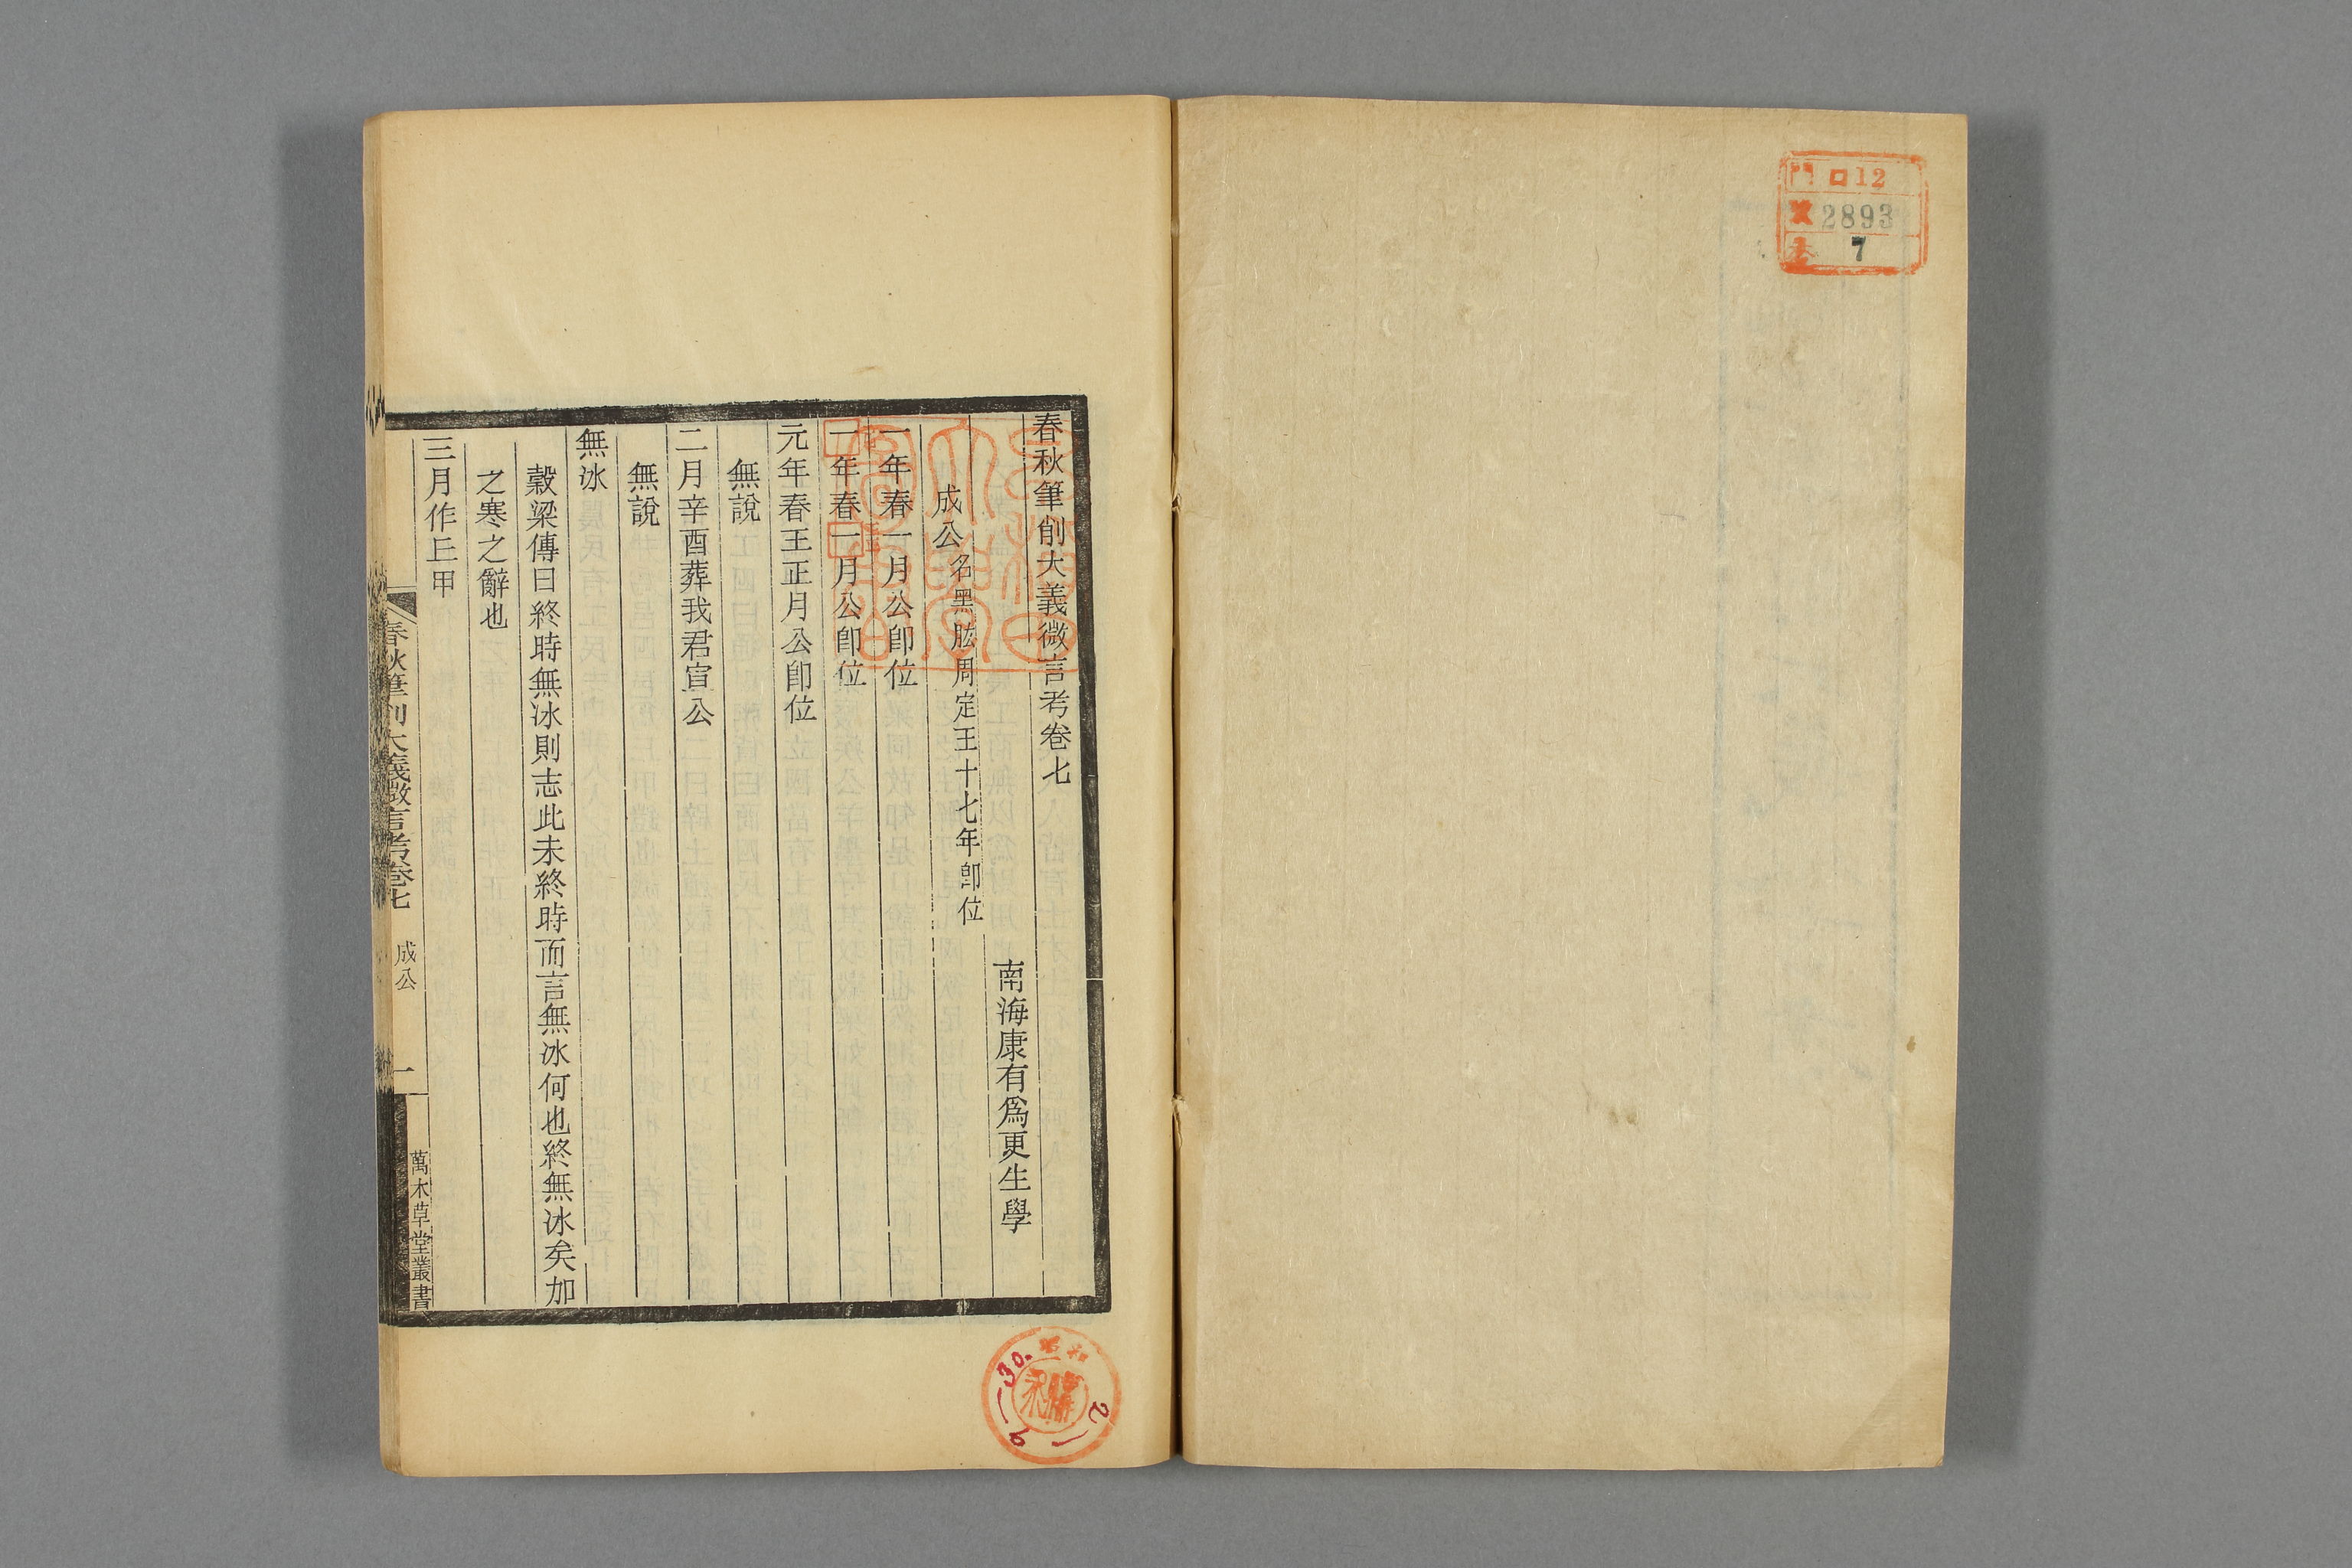 門 ロ12
2893
7
春秋筆削大義微言考卷七
南海康有爲更生學
成公名黑肱周定王十七年卽位
一年春一月公卽位
一年春一月公卽位
元年春王正月公卽位
無說
二月辛酉葬我君宣公
無說
無冰
穀梁傳曰終時無冰則志此未終時而言無冰何也終無冰矣加
之寒之辭也
三月作丘甲
春秋筆削大義微言考卷七 成公 一 萬木草堂叢書
昭和
30.
2